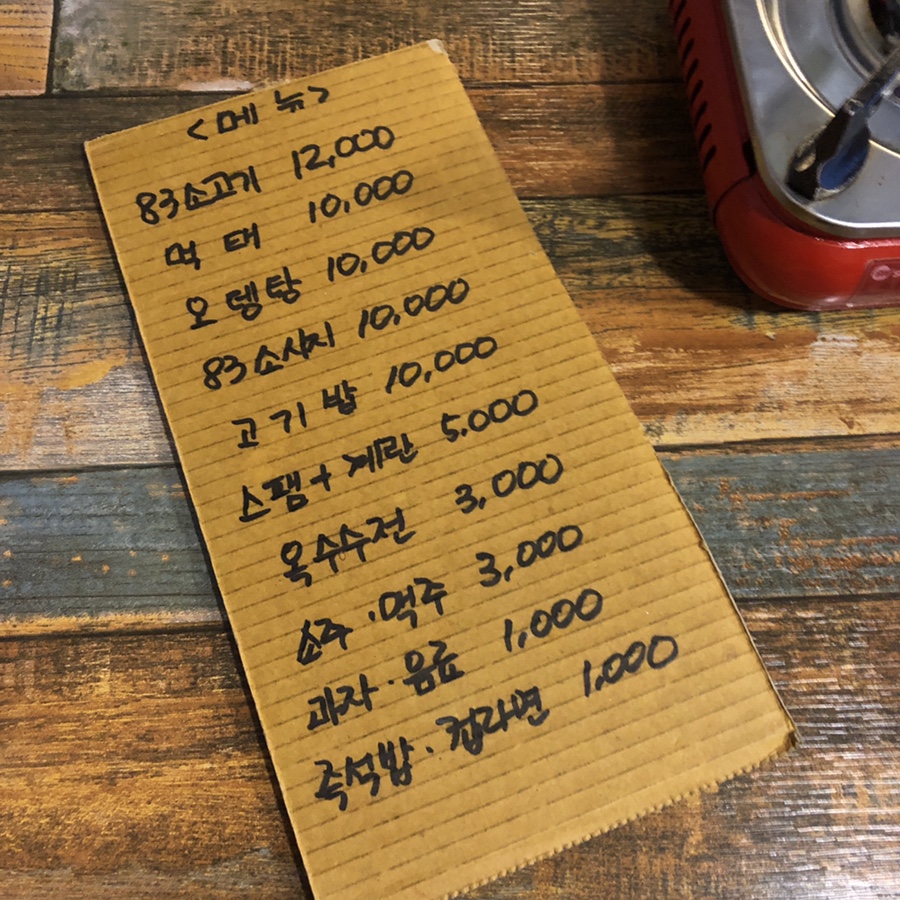 <메뉴>
83소고기 12,000
먹태 10,000
오뎅탕 10,000
83소시지 10,000
고기밥 10,000
스팸+계란 5.000
옥수수전 3,000
소주·맥주 3,000
과자·음료 1,000
즉석밥·컵라면 1,000